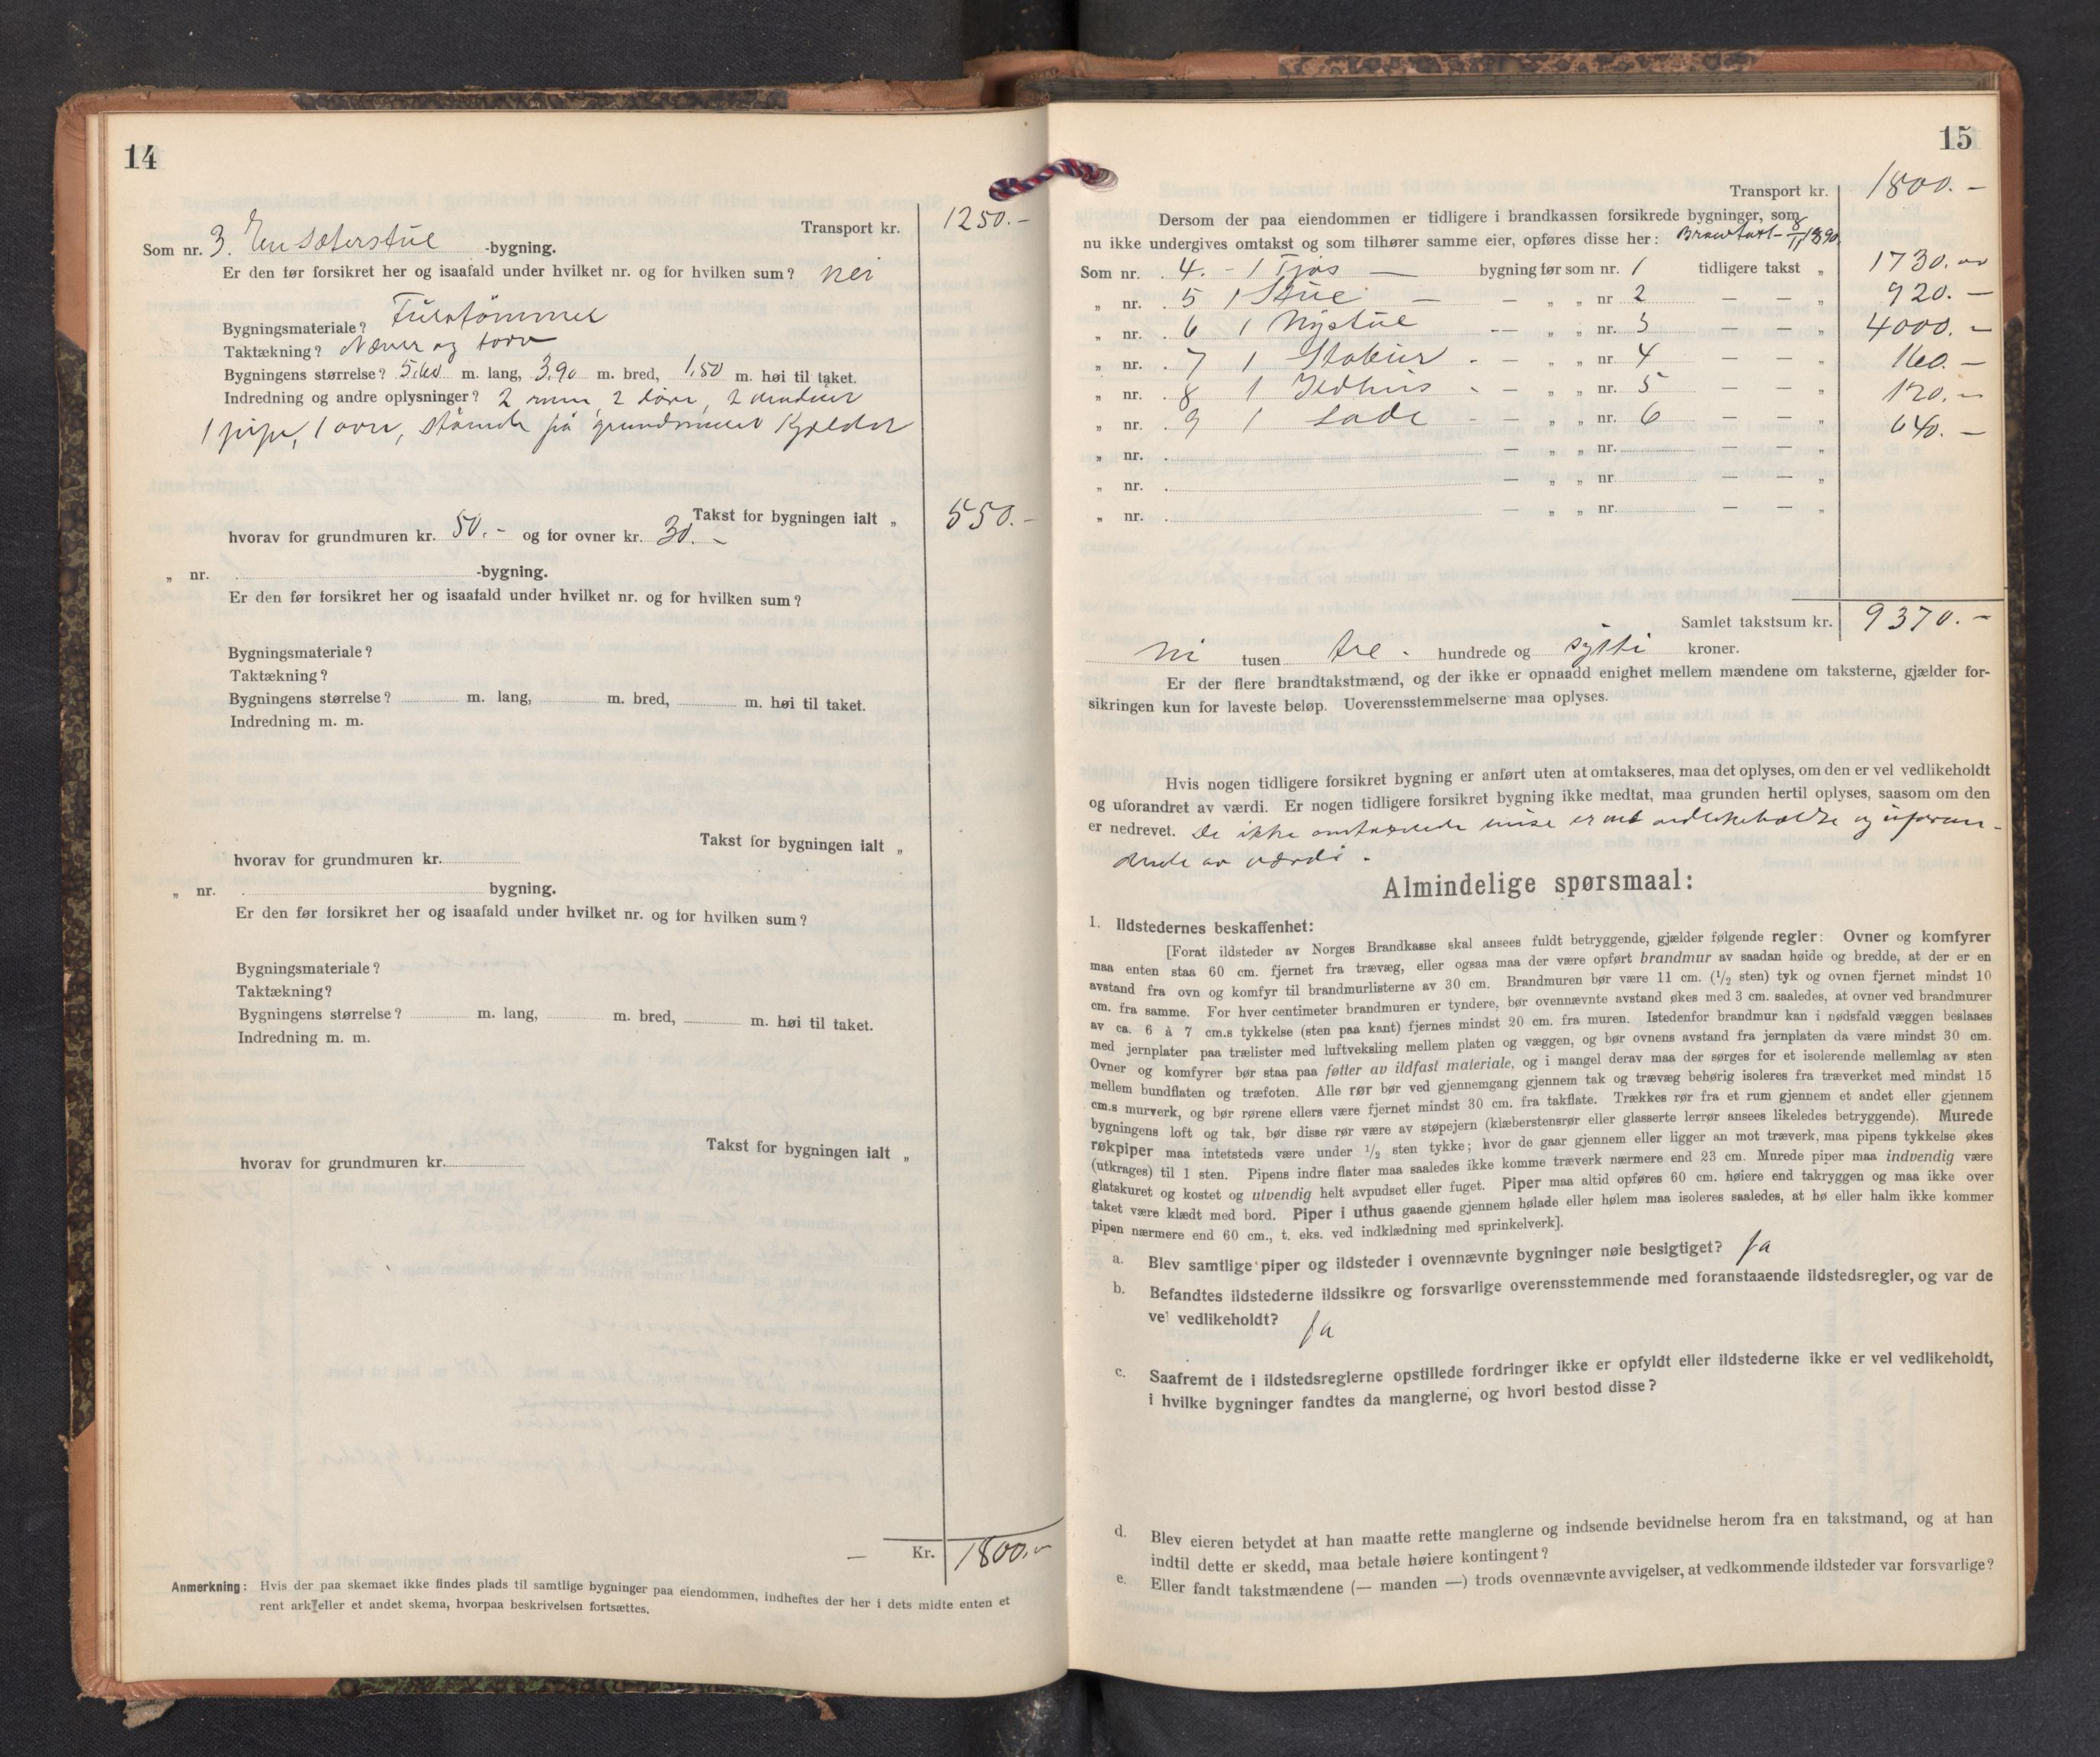 14
Transport kr. 1250.-
Som nr. 3. En Sæterstue -bygning.
Er den før forsikret her og isaafald under hvilket nr. og for hvilken sum? nei
Bygningsmateriale? Furutømmer
Taktækning? Næver og torv
Bygningens størrelse? 5,60 m. lang, 3,90 m. bred, 1,50 m. høi til taket.
Indredning og andre oplysninger? 2 rum, 2 døre, 2 vinduer
1 pipe, 1 ovn, stående på grundmuret Kjælder
Takst for bygningen ialt „ 550.-
hvorav for grundmuren kr. 50.- og for ovner kr. 30.-
„ nr. -bygning.
Er den før forsikret her og isaafald under hvilket nr. og for hvilken sum?
Bygningsmateriale?
Taktækning?
Bygningens størrelse? m. lang, m. bred, m. høi til taket.
Indredning m. m.
Takst for bygningen ialt „
hvorav for grundmuren kr.
„ nr. bygning.
Er den før forsikret her og isaafald under hvilket nr. og for hvilken sum?
Bygningsmateriale?
Taktækning?
Bygningens størrelse? m. lang, m. bred, m. høi til taket.
Indredning m. m.
Takst for bygningen ialt „
hvorav for grundmuren kr.
— Kr. 1800.-
Anmerkning: Hvis der paa skemaet ikke findes plads til samtlige bygninger paa eiendommen, indheftes der her i dets midte enten et
rent ark eller et andet skema, hvorpaa beskrivelsen fortsættes.
15
Transport kr. 1800.-
Dersom der paa eiendommen er tidligere i brandkassen forsikrede bygninger, som
nu ikke undergives omtakst og som tilhører samme eier, opføres disse her: 1890.
Som nr. 4. - 1 Fjøs — bygning før som nr. 1 tidligere takst „ 1730.-
„ nr. 5 1 Stue — — „ „ nr 2 — — „ 920.-
„ nr. 6 1 Nystue -- „ „ nr. 3 — — „ 4000.-
„ nr. 7 1 Stabur - — „ „ nr 4 — — „ 160.-
„ nr. 8 1 Ildhus - — „ „ nr. 5 — — „ 120.-
„ nr. 9 1 Lade - — „ „ nr. 6 — — „ 640.-
„ nr. — „ „ nr. — — „
„ nr. — „ „ nr. — — „
„ nr. — „ „ nr. — — „
Samlet takstsum kr. 9370.-
Ni tusen tre - hundrede og sytti kroner.
Er der flere brandtakstmænd, og der ikke er opnaadd enighet mellem mændene om taksterne, gjælder for-
sikringen kun for laveste beløp. Uoverensstemmelserne maa oplyses.
Hvis nogen tidligere forsikret bygning er anført uten at omtakseres, maa det oplyses, om den er vel vedlikeholdt
og uforandret av værdi. Er nogen tidligere forsikret bygning ikke medtat, maa grunden hertil oplyses, saasom om den
er nedrevet. De ikke omtakserede huse er vel vedlikeholdte og uforan-
drede av værdi.
Almindelige spørsmaal:
1. Ildstedernes beskaffenhet:
[Forat ildsteder av Norges Brandkasse skal ansees fuldt betryggende, gjælder følgende regler: Ovner og komfyrer
maa enten staa 60 cm. fjernet fra trævæg, eller ogsaa maa der være opført brandmur av saadan høide og bredde, at der er en
avstand fra ovn og komfyr til brandmurlisterne av 30 cm. Brandmuren bør være 11 cm. (1/2 sten) tyk og ovnen fjernet mindst 10
cm. fra samme. For hver centimeter brandmuren er tyndere, bør ovennævnte avstand økes med 3 cm. saaledes, at ovner ved brandmurer
av ca. 6 à 7 cm.s tykkelse (sten paa kant) fjernes mindst 20 cm. fra muren. Istedenfor brandmur kan i nødsfald væggen beslaaes
med jernplater paa trælister med luftveksling mellem platen og væggen, og bør ovnens avstand fra jernplaten da være mindst 30 cm.
Ovner og komfyrer bør staa paa føtter av ildfast materiale, og i mangel derav maa der sørges for et isolerende mellemlag av sten
mellem bundflaten og træfoten. Alle rør bør ved gjennemgang gjennem tak og trævæg behørig isoleres fra træverket med mindst 15
cm.s murverk, og bør rørene ellers være fjernet mindst 30 cm. fra takflate. Trækkes rør fra et rum gjennem et andet eller gjennem
bygningens loft og tak, bør disse rør være av støpejern (klæberstensrør eller glasserte lerrør ansees likeledes betryggende). Murede
røkpiper maa intetsteds være under 1/2 sten tykke; hvor de gaar gjennem eller ligger an mot træverk, maa pipens tykkelse økes
(utkrages) til 1 sten. Pipens indre flater maa saaledes ikke komme træverk nærmere end 23 cm. Murede piper maa indvendig være
glatskuret og kostet og utvendig helt avpudset eller fuget. Piper maa altid opføres 60 cm. høiere end takryggen og maa ikke over
taket være klædt med bord. Piper i uthus gaaende gjennem hølade eller hølem maa isoleres saaledes, at hø eller halm ikke kommer
pipen nærmere end 60 cm., t. eks. ved indklædning med sprinkelverk].
a. Blev samtlige piper og ildsteder i ovennævnte bygninger nøie besigtiget? ja
b. Befandtes ildstederne ildssikre og forsvarlige overensstemmende med foranstaaende ildstedsregler, og var de
vel vedlikeholdt? ja
c. Saafremt de i ildstedsreglerne opstillede fordringer ikke er opfyldt eller ildstederne ikke er vel vedlikeholdt,
i hvilke bygninger fandtes da manglerne, og hvori bestod disse?
d. Blev eieren betydet at han maatte rette manglerne og indsende bevidnelse herom fra en takstmand, og at han
indtil dette er skedd, maa betale høiere kontingent?
e. Eller fandt takstmændene (— manden —) trods ovennævnte avvigelser, at vedkommende ildsteder var forsvarlige?